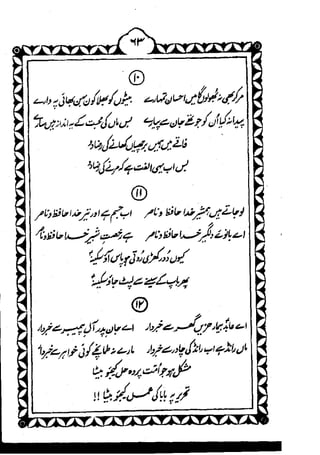 ۶۳
۱۰
مر کر بھی نہ بھولوں گا میں احسان تمہارے بیٹوں کو بھلا کون بہن بھائی پہ وارے
پیدا نہ کیا اُن کو جو تھے جان سے پیارے بس ماں کی محبت کے یہ انداز ہیں سارے
فاقے میں ہمیں برچھیاں کھانے کی رضا دو
بس اب یہی الفت ہے کہ مرنے کی رضا دو
۱۱
لو جاتے ہیں ہمشیر خدا حافظ و ناصر اب ہم ہے اور تیر خدا حافظ و ناصر
اے بانوئے دلگیر خدا حافظ و ناصر ہے رخصت شبیر خدا حافظ و ناصر
کیوں دور کھڑی روتی ہو پاس آؤ سکینہؑ
پھر باپ کے سینے سے لپٹ جاؤ سکینہؑ
۱۲
اے عابد بیمار حزیں گھر سے خبردار اے جان پدر آل پیمبر سے خبردار
ماں رانڈ ہے اب رانڈ کی چادر سے خبردار مارے نہ طمانچے کوئی خواہر سے خبردار
مشکل جو ہو اُمت پہ وہ حل کیجیو بیٹا
تحریر پہ بابا کی عمل کیجیو بیٹا !!